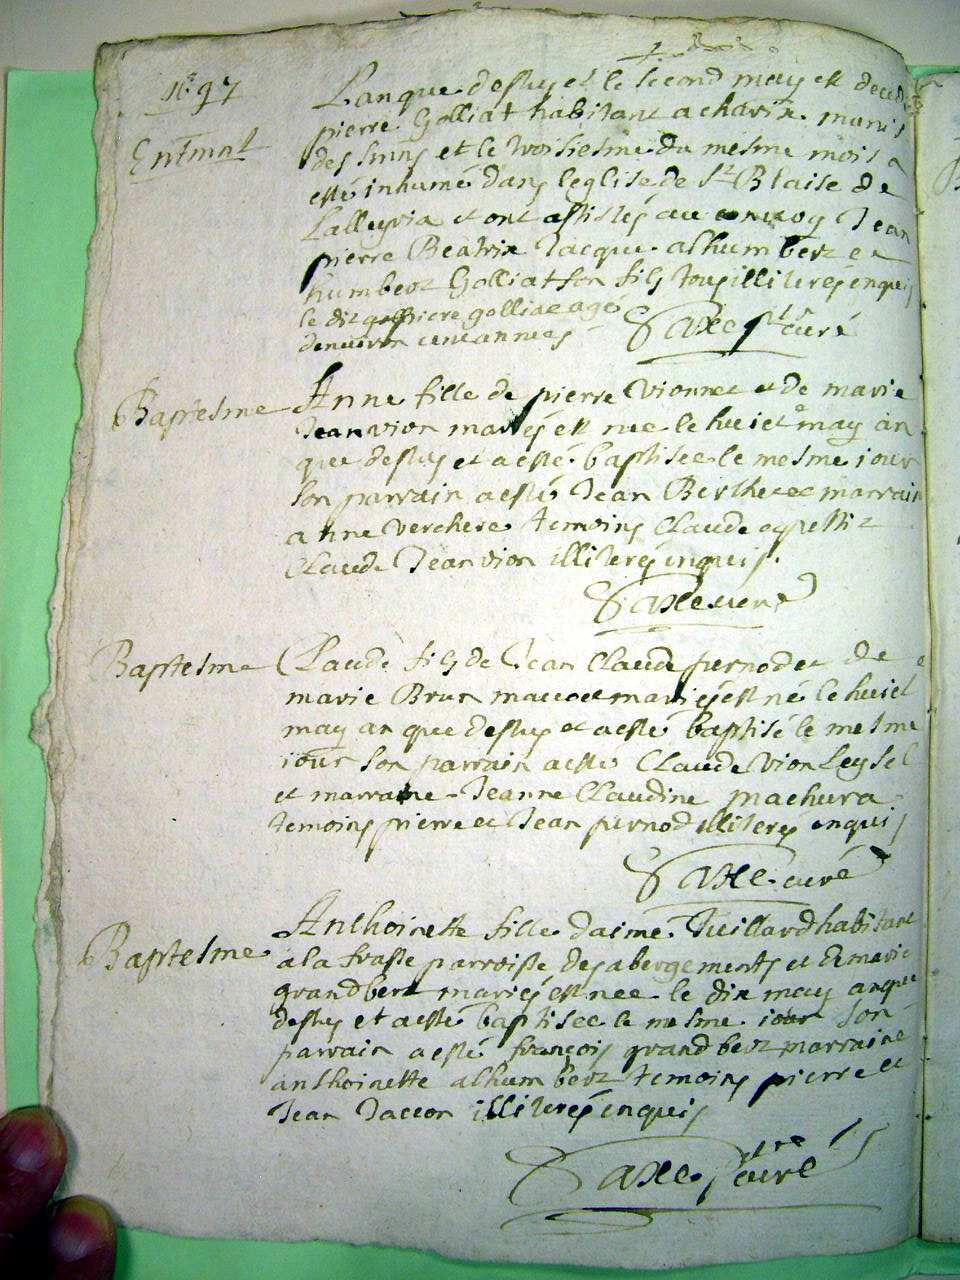 n.º 97
Lanque dessus et le second may est decedé
pierre Golliat habitant a charix munis
Entmnt
des smns et le troisiesme du mesme mois a
esté inhumé dans leglise de St Blaise de
Lalleyria et ont assistés au convoy Jean
pierre Beatrix Jacque alhumbert et
humbert Golliat son fils tous illiterés enquis
le dit pierre golliat agé
denviron cent années
Saxe ptre curé
Baptesme
Anne fille de pierre Vionnet et de marie
Jeanvion mariés est née le huict may an
que dessus et a esté baptisee le mesme iour
son parrain a esté Jean Berthet et marrain
anne verchere temoins Claude
Claude Jeanvion illiterés enquis.
Saxe curé
Baptesme
Claude fils de Jean Claude furnod et de
marie Brun mariés est né le huict
may an que dessus et a esté baptisé le mesme
iour son parrain a esté Claude Vion
et marraine Jeanne Claudine machura
temoins pierre et Jean furnod illiterés enquis
Saxe curé
Baptesme
Anthoinette fille daimé Tuillard habitant
a la frasse parroisse des abergements et de marie
grandbert mariés est née le dix may an que
dessus et a esté baptisee le mesme iour son
parrain a esté françois grandbert marraine
anthoinette alhumbert temoins pierre et
Jean Daccon illiterés enquis
Saxe ptre curé